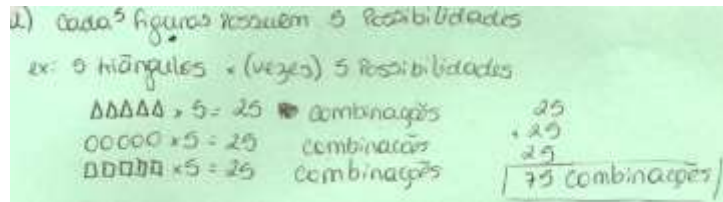 a) Cada 5 figuras possuem 5 Possibilidades
ex: 5 triângulos . (vezes) 5 Possibilidades
ΔΔΔΔΔ x 5 = 25 combinações 25
OOOOO x 5 = 25 combinacões + 25
□□□□□ x 5 = 25 combinações 25
75 combinações